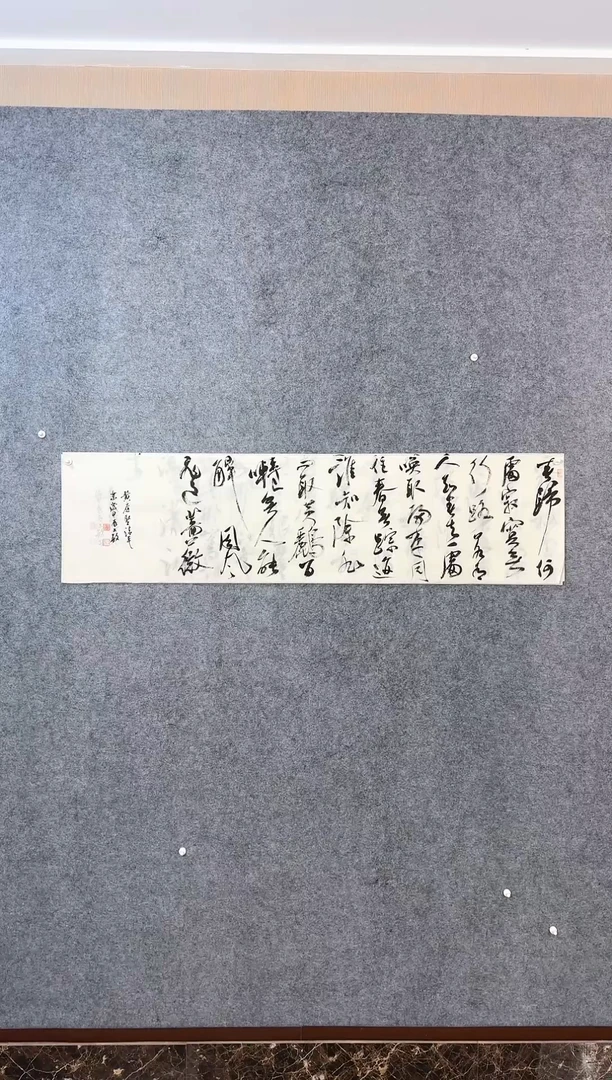 春歸何
處寂寞無
行路若有
人知春去處
喚取歸來同
住春無蹤迹
誰知除非
問取黄鸝百
囀無人能
解因風
飛過薔薇
黄庭堅清平